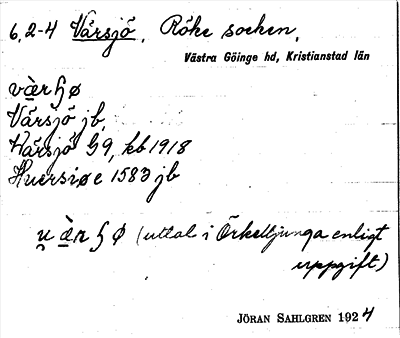 6,2-4 Vårsjö. Röke socken,
Västra Göinge hd, Kristianstad län
væ̀rɧø
Vårsjö jb,
Vårsjö G9, kb 1918
Huersiøe 1583 jb
u̯æ̀rɧø (uttal i Örkelljunga enligt
uppgift)
JÖRAN SAHLGREN 1924